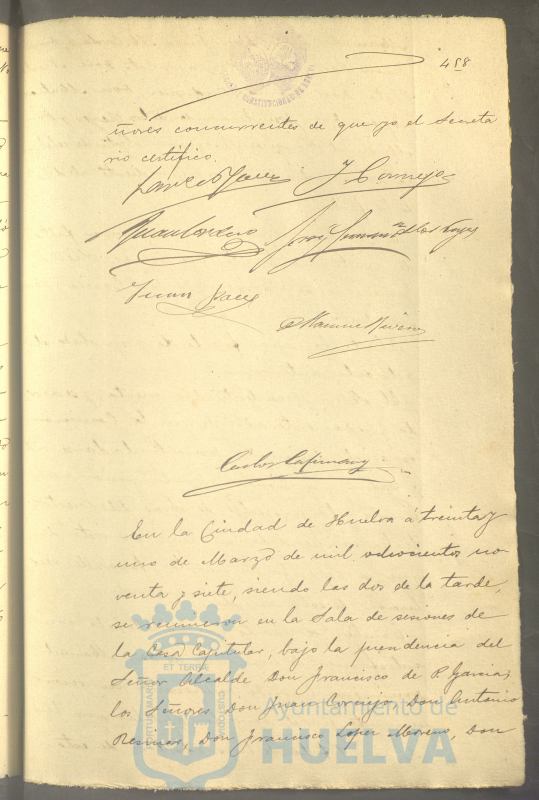 458
ñores concurrentes de que yo el Secreta
rio certifico.
J Cornejo
Juan
Manuel
Carlos
En la Ciudad de Huelva á treinta y
uno de Marzo de mil ochocientos no-
venta y siete, siendo las dos de la tarde,
se reunieron en la Sala de sesiones de
la Casa Capitular, bajo la presidencia del
Señor Alcalde Don Francisco de P. Garcia,
los Señores Don Juan Cornejo, Don Antonio
Don Francisco Lopez Moreno, Don
ET TERRAE
PORTUS MARIS
CUSTODIA
Ayuntamiento de
HUELVA